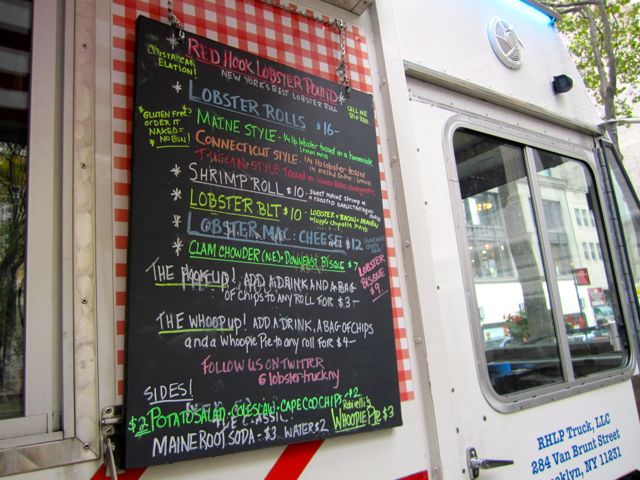 CRUSTACEAN
ELATION!
RED HOOK LOBSTER POUND
NEW YORK'S BEST LOBSTER ROLL
LOBSTER ROLLS $16-
GLUTEN FREE?
ORDER IT
NAKED =
NO BUN!
MAINE STYLE - 1/4 lb lobster tossed on a homemade
lemon mayo
CONNECTICUT STYLE - 1/4 lb lobster tossed
in melted butter, lemon
TUSCAN STYLE - Tossed in lemon basil vinaigrette
SHRIMP ROLL $10 - sweet maine shrimp in
LOBSTER BLT $10 - LOBSTER + BACON = HEAVEN
w/ chipotle MAYO
LOBSTER MAC - CHEESE $12
CLAM CHOWDER (NE) + DOWNEAST BISQUE $7
LOBSTER
BISQUE
$9
THE HOOKUP! ADD A DRINK AND A BAG
OF CHIPS TO ANY ROLL FOR $3-
THE WHOOP UP! ADD A DRINK, A BAG OF CHIPS
and a Whoopie Pie to any roll FOR $4-
FOLLOW US ON TWITTER
@lobstertruckny
SIDES!
$2 POTATO SALAD - COLESLAW - CAPE COD CHIPS - $2
MAINE ROOT SODA - $3. WATER $2
WHOOPIE PIE $3
RHLP Truck, LLC
284 Van Brunt Street
Brooklyn, NY 11231